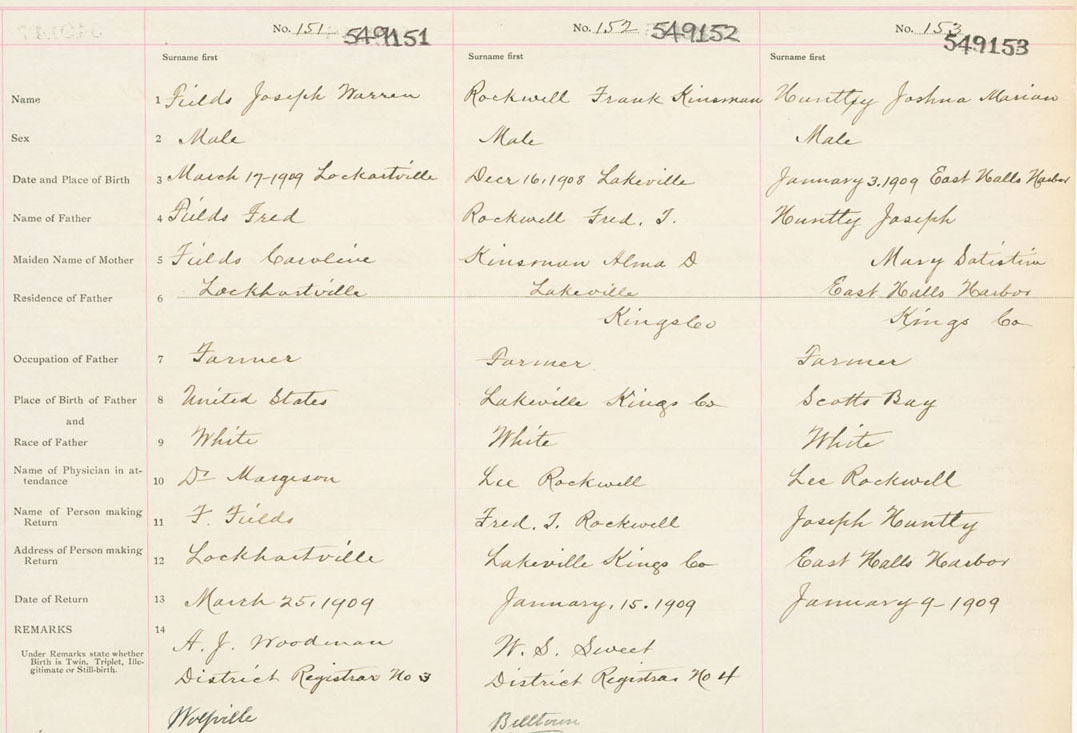 No. 151 549151 No. 152 549152 No. 153 549153
Surname first Surname first Surname first
Name 1 Fields Joseph Warren Rockwell Frank Kinsman Huntley Joshua Marian
Sex 2 Male Male Male
Date and Place of Birth 3 March 17-1909 Lockartville Decr 16, 1908 Lakeville January 3. 1909 East Halls Harbor
Name of Father 4 Fields Fred Rockwell Fred. T. Huntly Joseph
Maiden Name of Mother 5 Fields Caroline Kinsman Alma D Mary
Residence of Father 6 Lockhartville Lakeville East Halls Harbor
Kings Co Kings Co
Occupation of Father 7 Farmer Farmer Farmer
Place of Birth of Father 8 United States Lakeville Kings Co Scotts Bay
and
Race of Father 9 White White White
Name of Physician in at-
tendance 10 Dr Margeson Lee Rockwell Lee Rockwell
Name of Person making
Return 11 F. Fields Fred. T. Rockwell Joseph Huntly
Address of Person making
Return 12 Lockhartville Lakeville Kings Co East Halls Harbor
Date of Return 13 March 25, 1909 January. 15. 1909 January 9-1909
REMARKS 14 A. J. Woodman W. S. Sweet
Under Remarks state whether
Birth is Twin, Triplet, Ille-
gitimate or Still-birth.
District Registrar No 3 District Registrar No 4
Wolfville Billtown